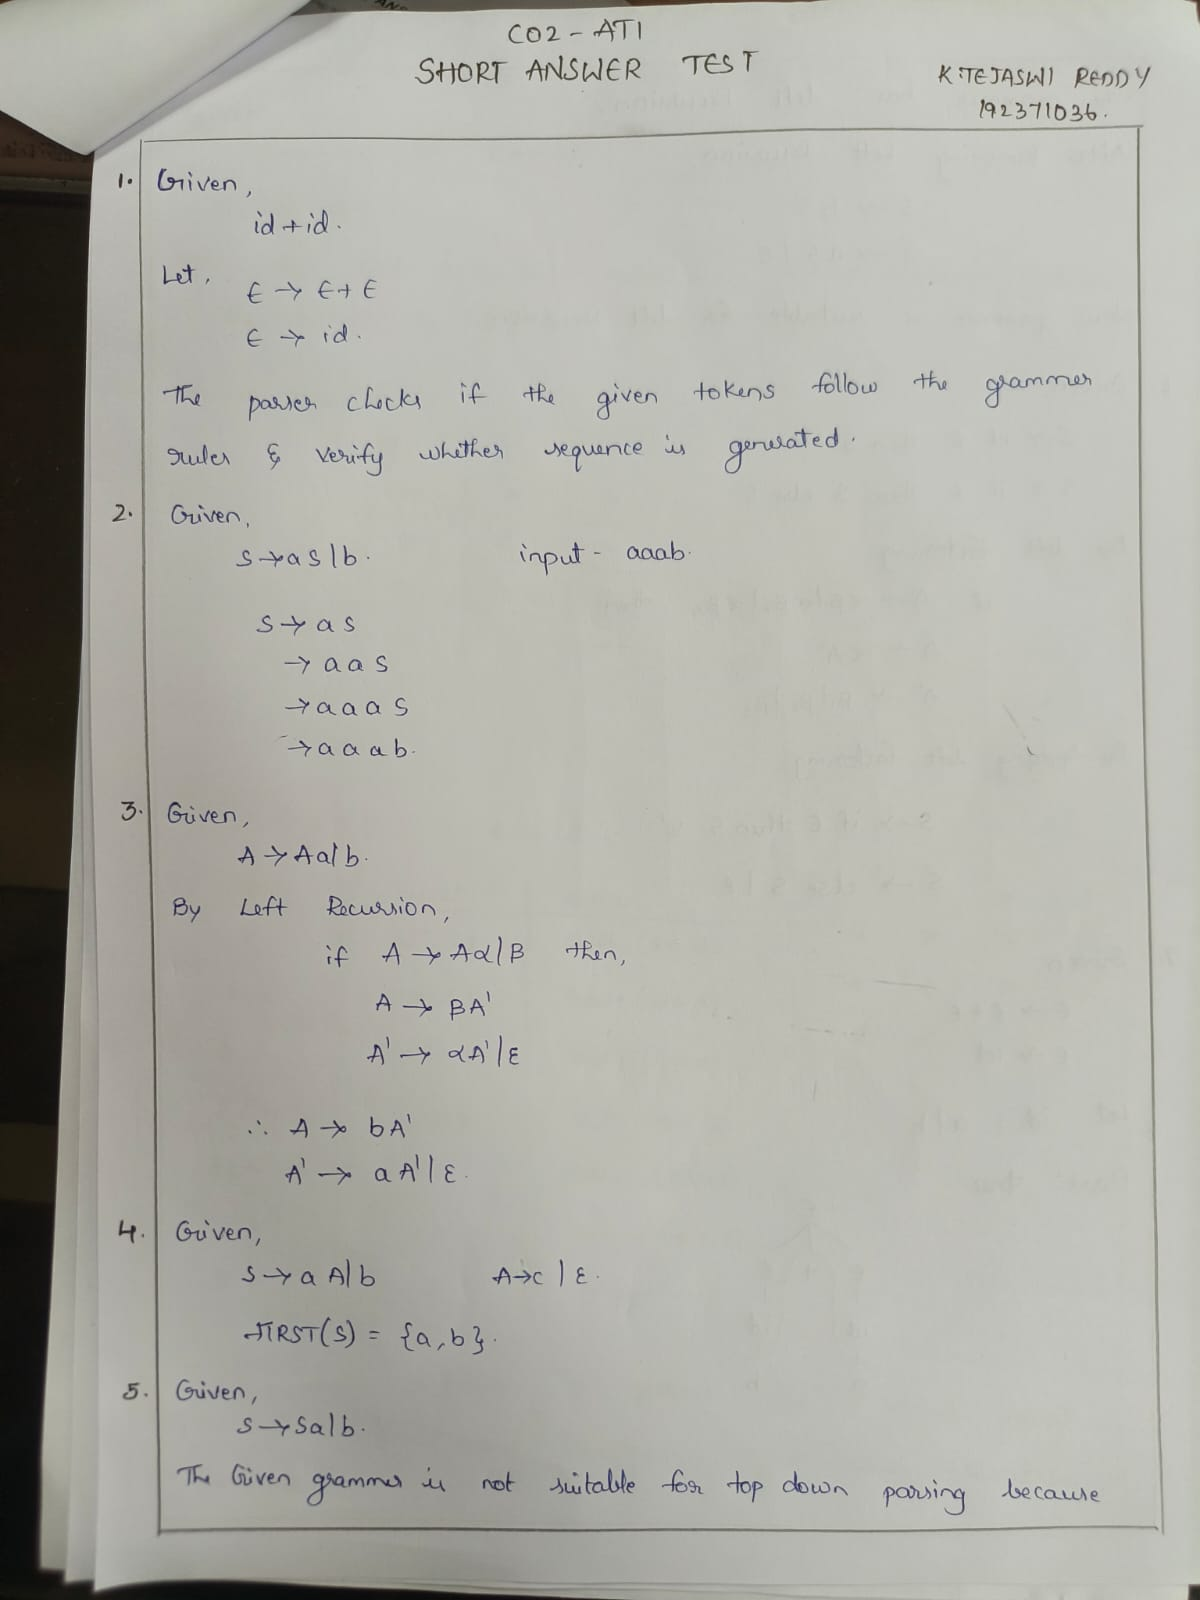 CO2 - AT1
SHORT ANSWER TEST
K.TEJASWI REDDY
192371036.
1. Given,
id + id.
Let,
E → E + E
E → id.
The parser checks if the given tokens follow the grammer
rules & verify whether sequence is generated.
2. Given,
S → aS | b. input - aaab.
S → a S
→ a a S
→ a a a S
→ a a a b.
3. Given,
A → Aa | b.
By Left Recursion,
if A → Aα | β then,
A → βA'
A' → αA' | ε
∴ A → bA'
A' → aA' | ε.
4. Given,
S → aA | b A → c | ε.
FIRST(S) = {a, b}.
5. Given,
S → Sa | b.
The Given grammer is not suitable for top down parsing because